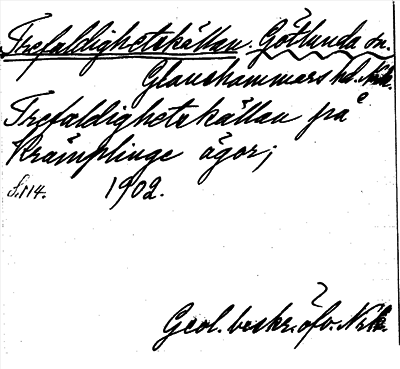 Trefaldighetskällan. Götlunda sn.
Glanshammars hd. Nrk.
Trefaldighetskällan på
Krämplinge ägor;
S. 114. 1902.
Geol. beskr. öfv. Nrk.